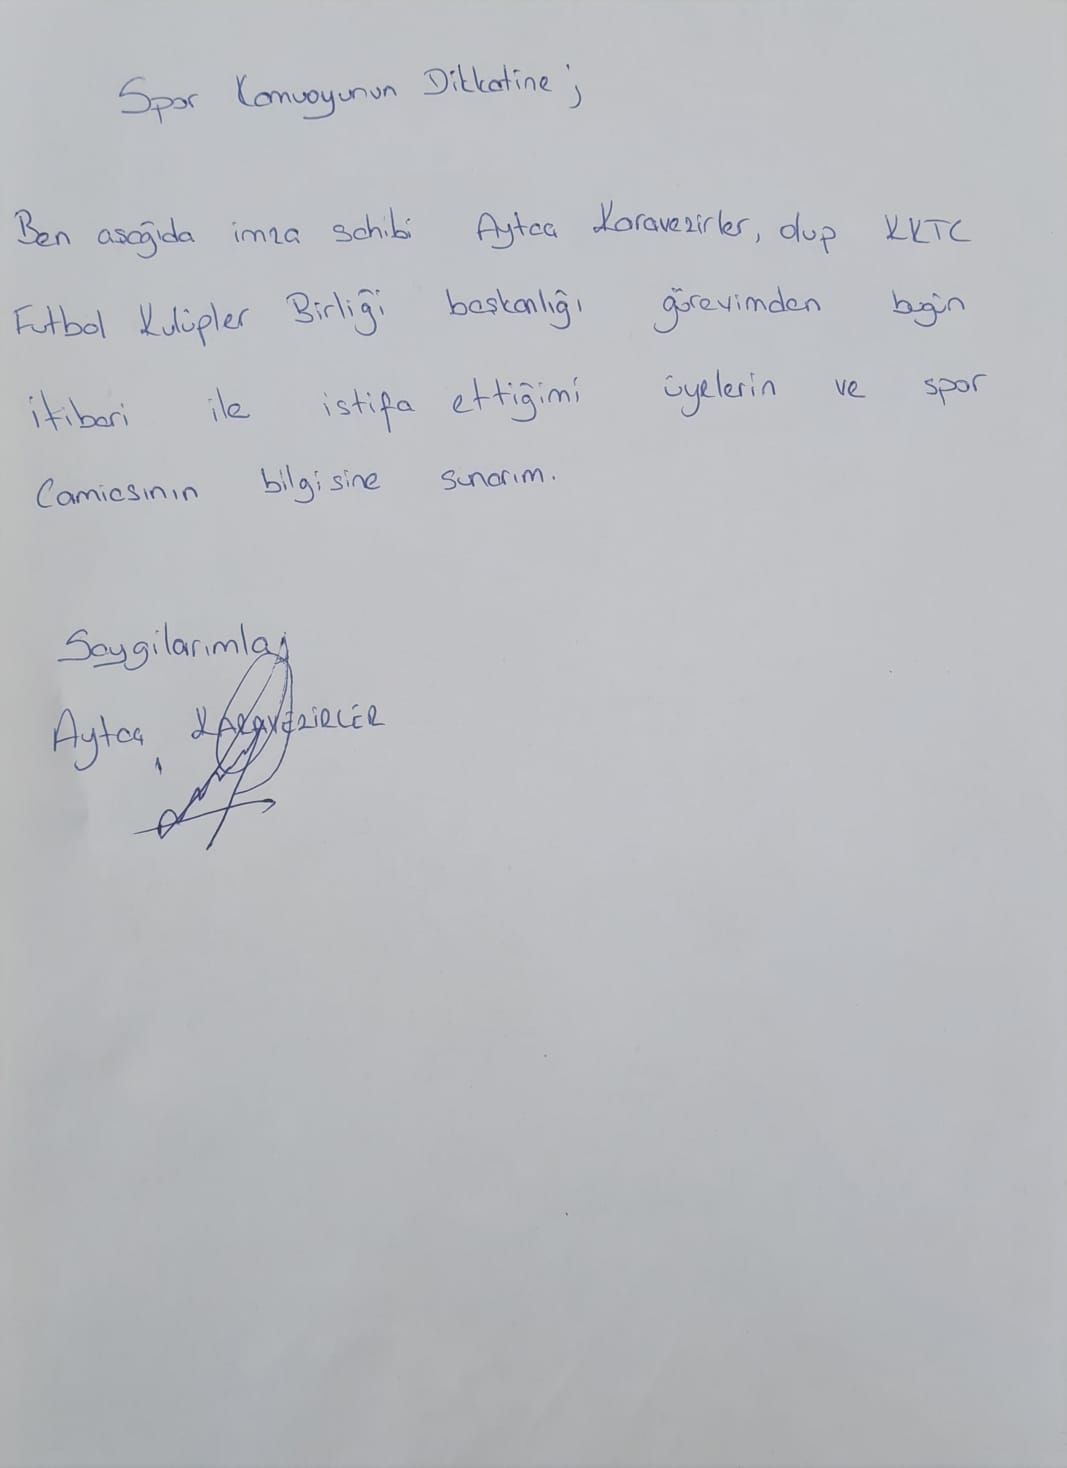 Spor Kamuoyunun Dikkatine;
Ben asağıda imza sahibi Aytca Karavezirler, olup KKTC
Futbol Kulüpler Birliği başkanlığı görevimden bugün
itibari ile istifa ettiğimi üyelerin ve spor
Camiasının bilgisine sunarım.
Saygilarımla;
Aytca KARAVEZİRLER